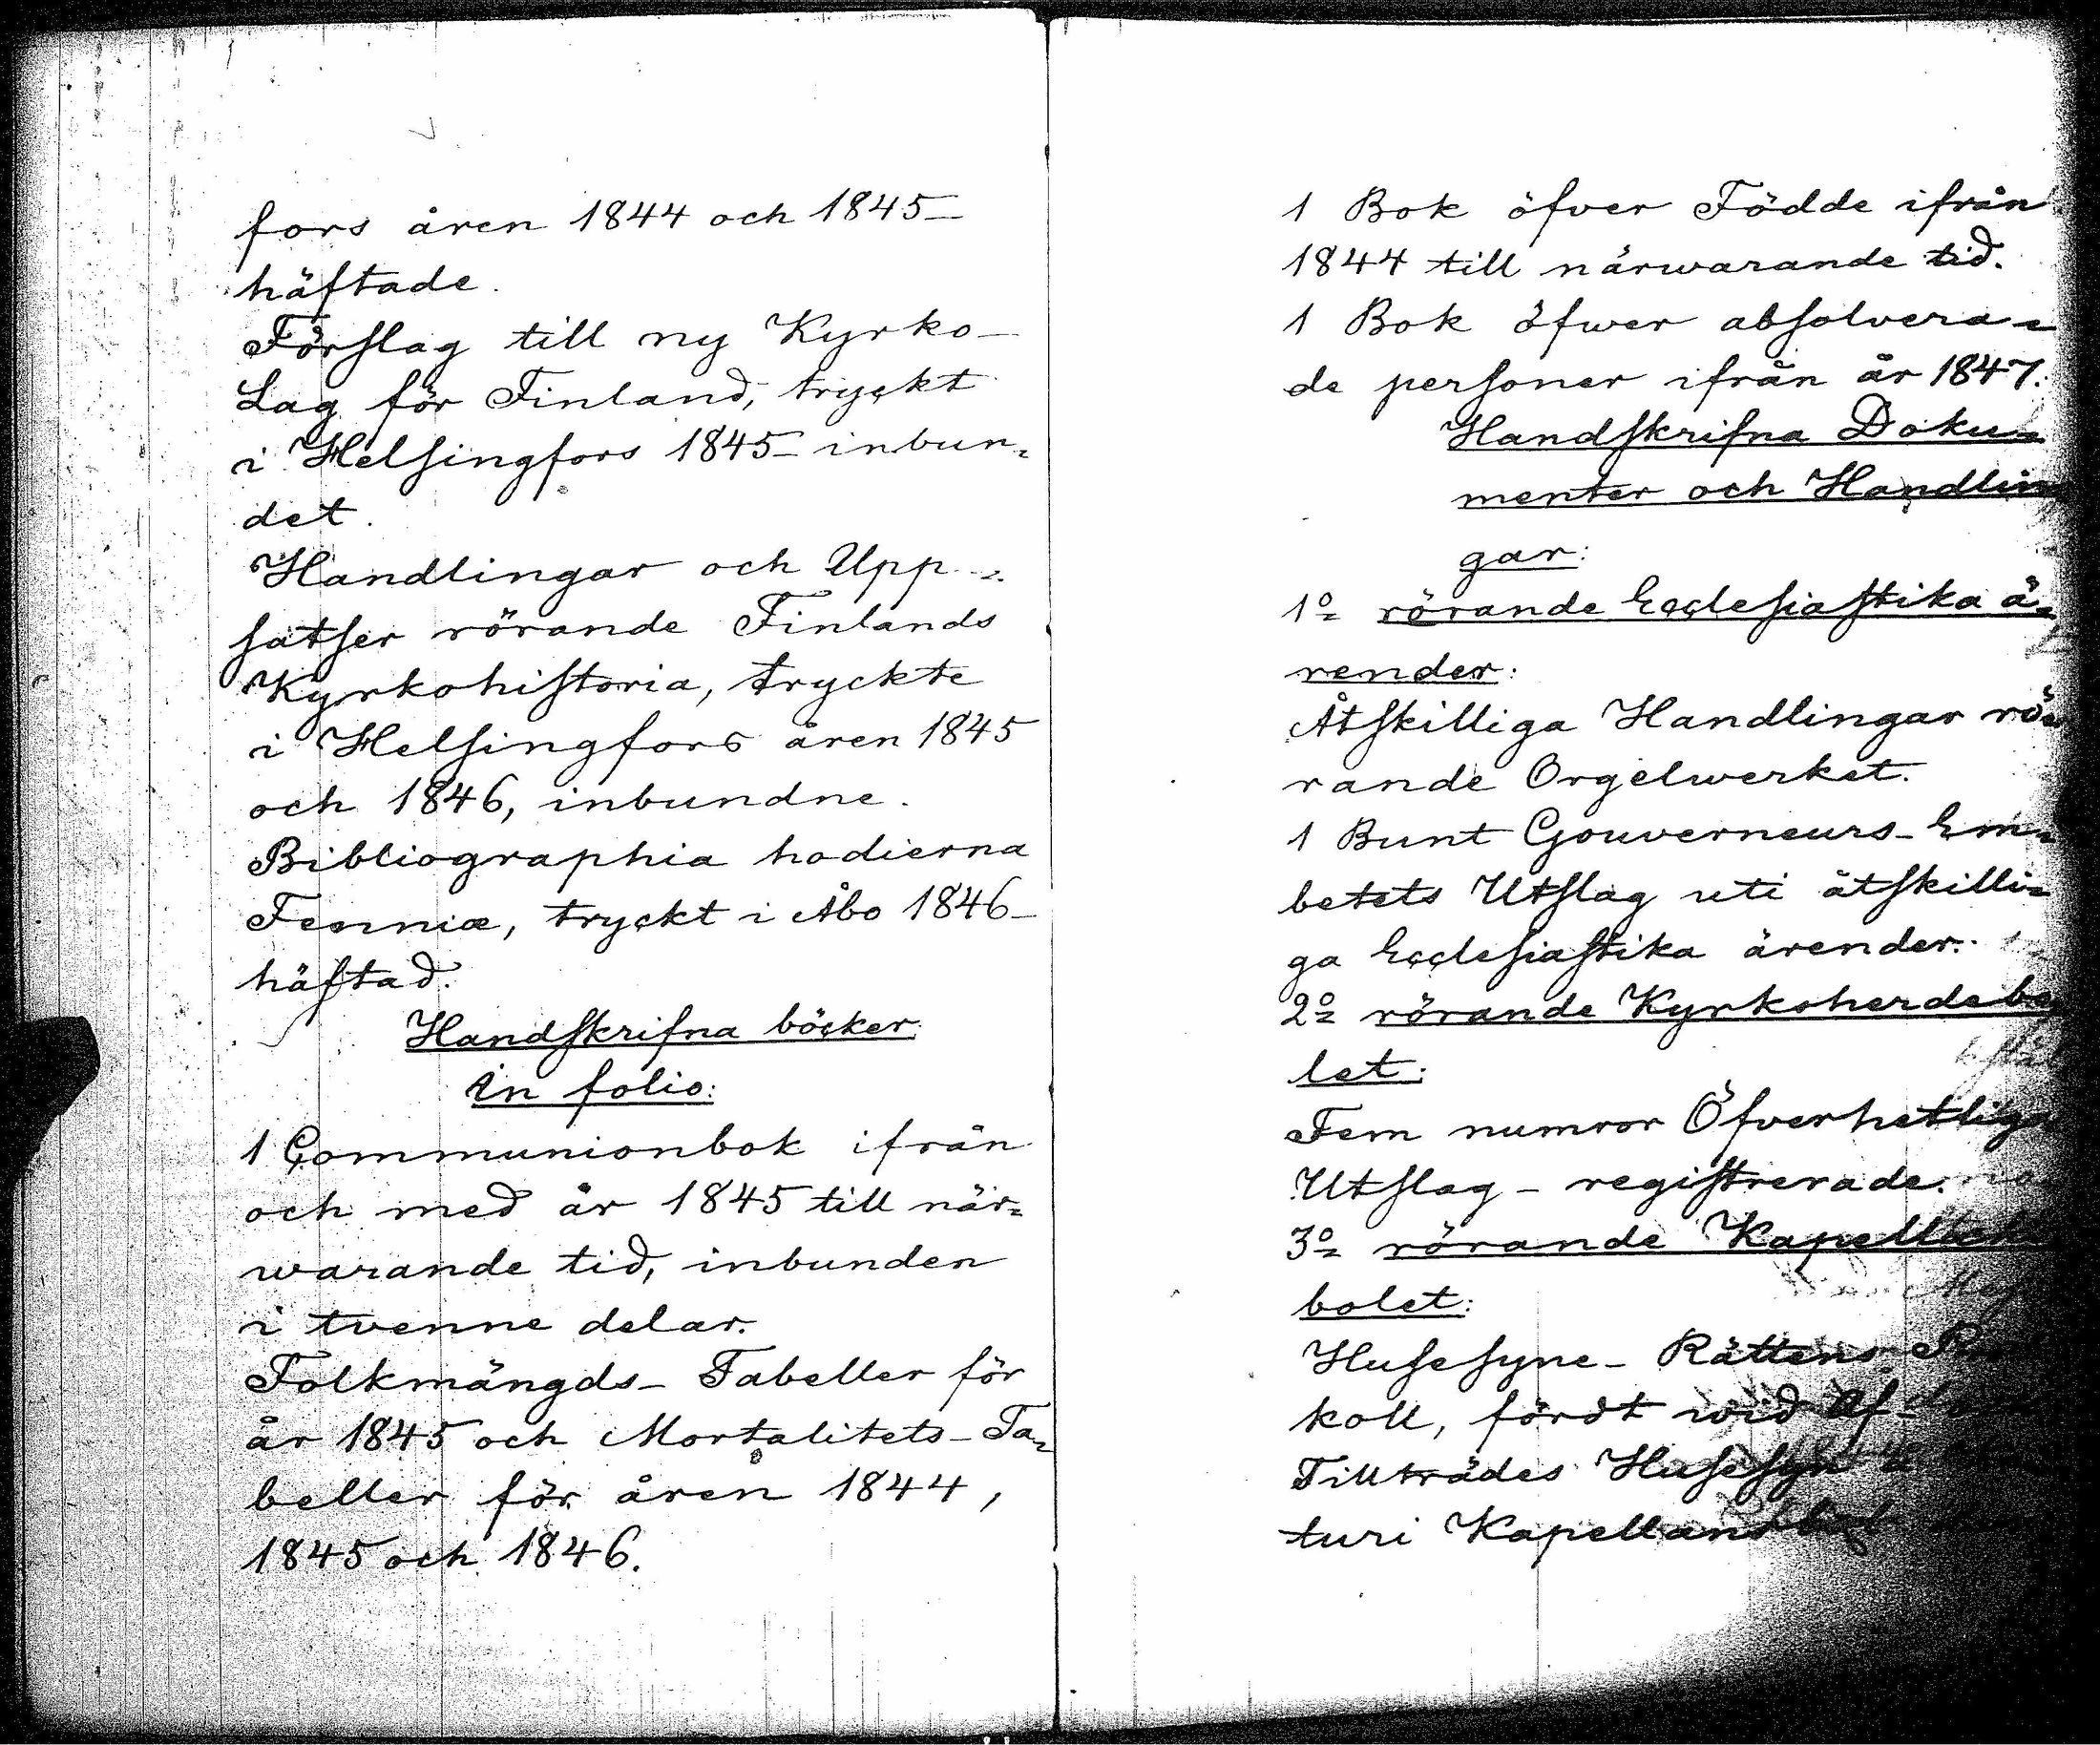 fors åren 1844 och 1845–
häftade.
Förslag till ny Kyrko–
Lag för Finland, tryckt
i Helsingfors 1845– inbun=
det.
Handlingar och Upp=
satser rörande Finlands
Kyrkohistoria, tryckte
i Helsingfors åren 1845
och 1846, inbundne.
Bibliographia hodierna
Fenniæ, tryckt i Åbo 1846–
häftad.
Handskrifna böcker
in folio:
1 Communionbok ifrån
och med år 1845 till när=
warande tid, inbunden
i tvenne delar.
Folkmängds– Tabeller för
år 1845 och Mortalitets– Ta=
beller för åren 1844,
1845 och 1846.
1 Bok öfver Födde ifrån
1844 till närwarande tid.
1 Bok öfwer absolvera=
de personer ifrån år 1847.
Handskrifna Doku=
menter och Handlin
gar:
1o= rörande Ecclesiastika ä=
render:
Åtskilliga Handlingar rö=
rande Orgelwerket.
1 Bunt Gouverneurs– Em=
betets Utslag uti åtskilli=
ga Ecclesiastika ärender.
2o= rörande Kyrkoherdebo
let:
Fem numror Öfverhetliga
Utslag – registrerade.
3o= rörande
bolet:
Husesyne– Rättens
koll, fördt wid Af–
Tillträdes Husesyn
turi